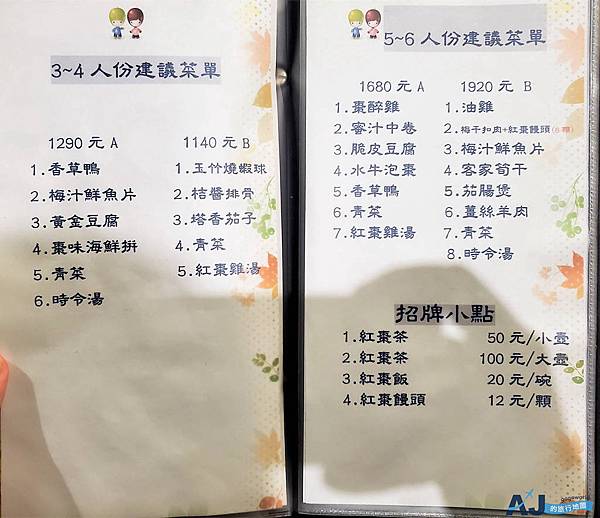 3~4 人份建議菜單
1290 元 A
1.香草鴨
2.梅汁鮮魚片
3.黃金豆腐
4.棗味海鮮拼
5.青菜
6.時令湯
1140 元 B
1.玉竹燒蝦球
2.桔醬排骨
3.塔香茄子
4.青菜
5.紅棗雞湯
5~6 人份建議菜單
1680 元 A
1.棗醉雞
2.蜜汁中卷
3.脆皮豆腐
4.水牛泡棗
5.香草鴨
6.青菜
7.紅棗雞湯
1920 元 B
1.油雞
2.梅干扣肉+紅棗饅頭(8顆)
3.梅汁鮮魚片
4.客家筍干
5.茄腸煲
6.薑絲羊肉
7.青菜
8.時令湯
招牌小點
1.紅棗茶 50 元/小壺
2.紅棗茶 100 元/大壺
3.紅棗飯 20 元/碗
4.紅棗饅頭 12 元/顆
AJ
的旅行地圖